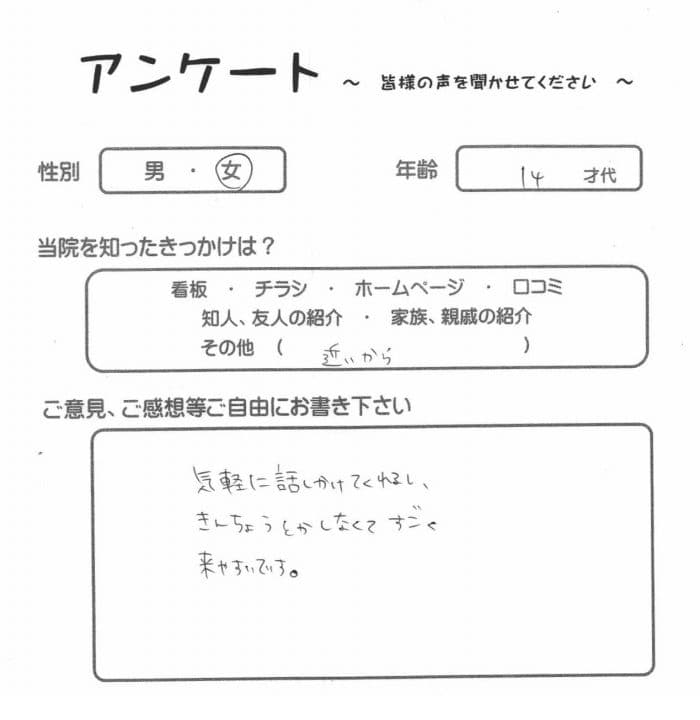 アンケート ～ 皆様の声を聞かせてください ～
性別 男 ・ 女 年齢 14 才代
当院を知ったきっかけは？
看板 ・ チラシ ・ ホームページ ・ 口コミ
知人、友人の紹介 ・ 家族、親戚の紹介
その他 ( 近いから )
ご意見、ご感想等ご自由にお書き下さい
気軽に話しかけてくれるし、
きんちょうとかしなくてすごく
来やすいです。